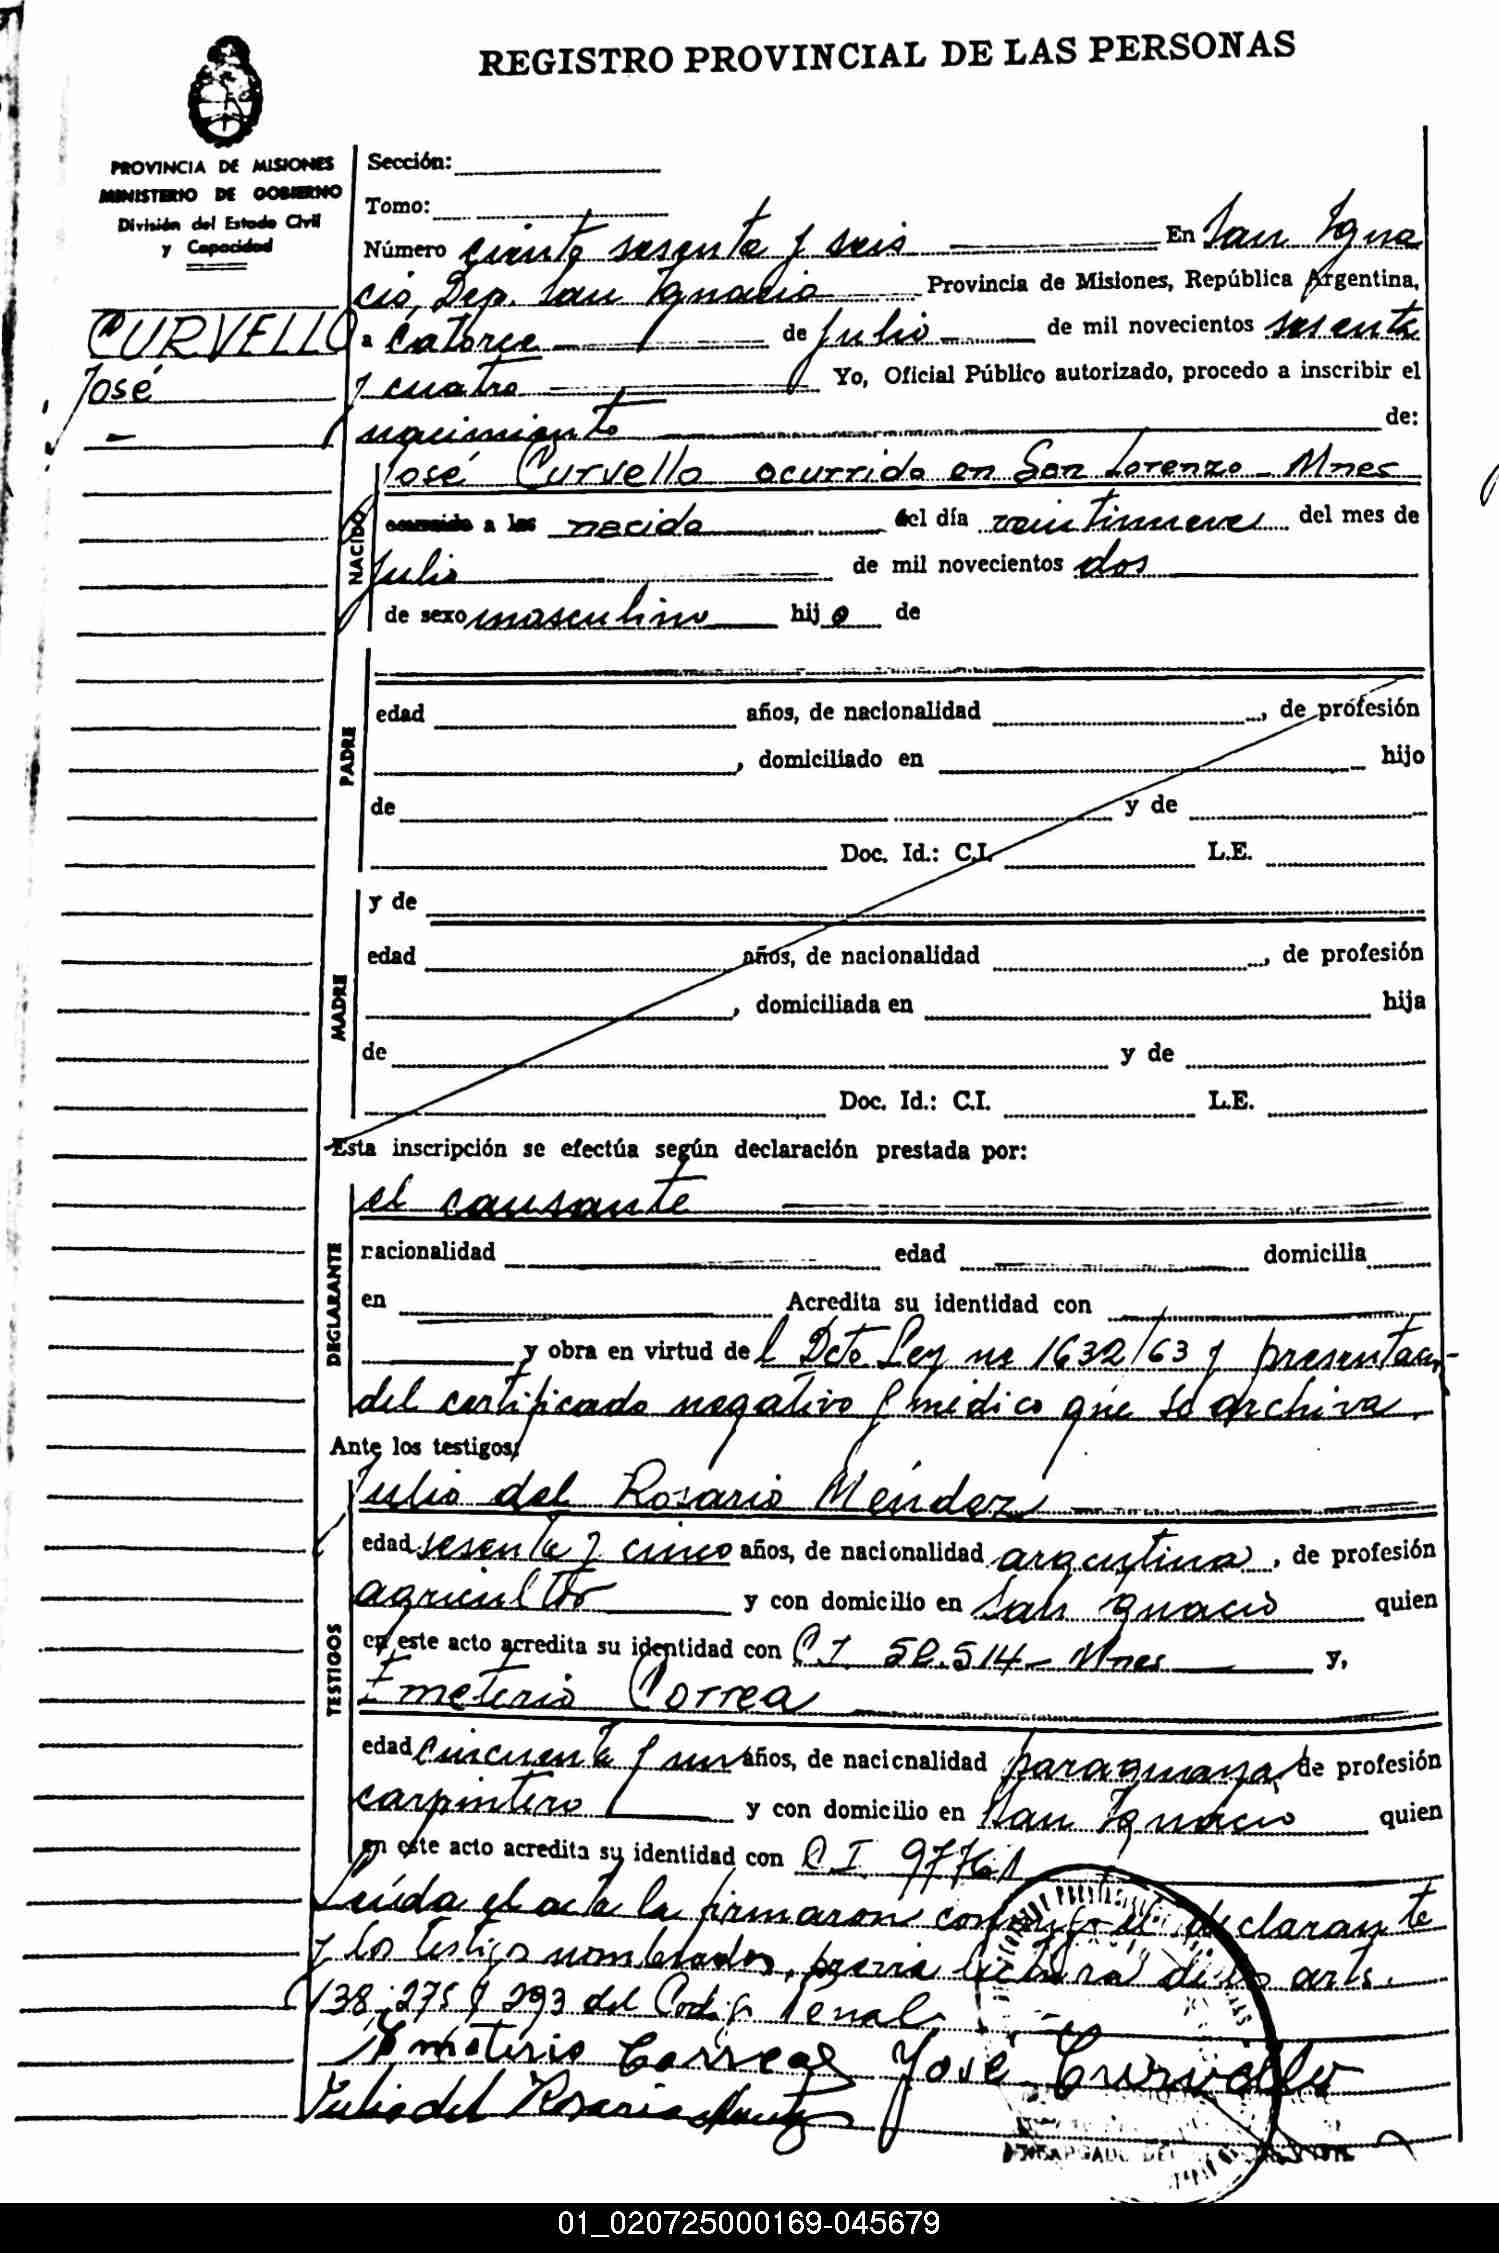 REGISTRO PROVINCIAL DE LAS PERSONAS
PROVINCIA DE MISIONES
MINISTERIO DE GOBIERNO
División del Estado Civil
y Capacidad
CURVELLO
José
Sección:
Tomo:
Número ciento sesenta y seis En San Igna
cio, Dep. San Ignacio Provincia de Misiones, República Argentina,
a catorce de julio de mil novecientos sesenta
y cuatro Yo, Oficial Público autorizado, procedo a inscribir el
nacimiento de:
José Curvello ocurrido en San Lorenzo - Mnes
NACIDO
a las nacido del día veintinueve del mes de
Julio de mil novecientos dos
de sexo masculino hijo de
PADRE
edad años, de nacionalidad , de profesión
, domiciliado en hijo
de y de
Doc. Id.: C.I. L.E.
MADRE
y de
edad años, de nacionalidad , de profesión
, domiciliada en hija
de y de
Doc. Id.: C.I. L.E.
Esta inscripción se efectúa según declaración prestada por:
DECLARANTE
el causante
nacionalidad edad domicilia
en Acredita su identidad con
y obra en virtud del Dcto Ley nº 1632/63 y presentacn-
del certificado negativo y médico que se archiva.
Ante los testigos:
TESTIGOS
Julio del Rosario Méndez
edad sesenta y cinco años, de nacionalidad argentina, de profesión
agricultor y con domicilio en San Ignacio quien
en este acto acredita su identidad con C.I. 52.514 - Mnes y,
Emeterio Correa
edad cincuenta y un años, de nacionalidad paraguaya, de profesión
carpintero y con domicilio en San Ignacio quien
en este acto acredita su identidad con C I 97761
Leída el acta la firmaron conmigo el declarante
y los testigos nombrados, previa lectura de los arts.
138, 275 y 293 del Codigo Penal.
Emeterio Correa José Curvello
Julio del Rosario Mendez
ENCARGADO DEL
01_020725000169-045679